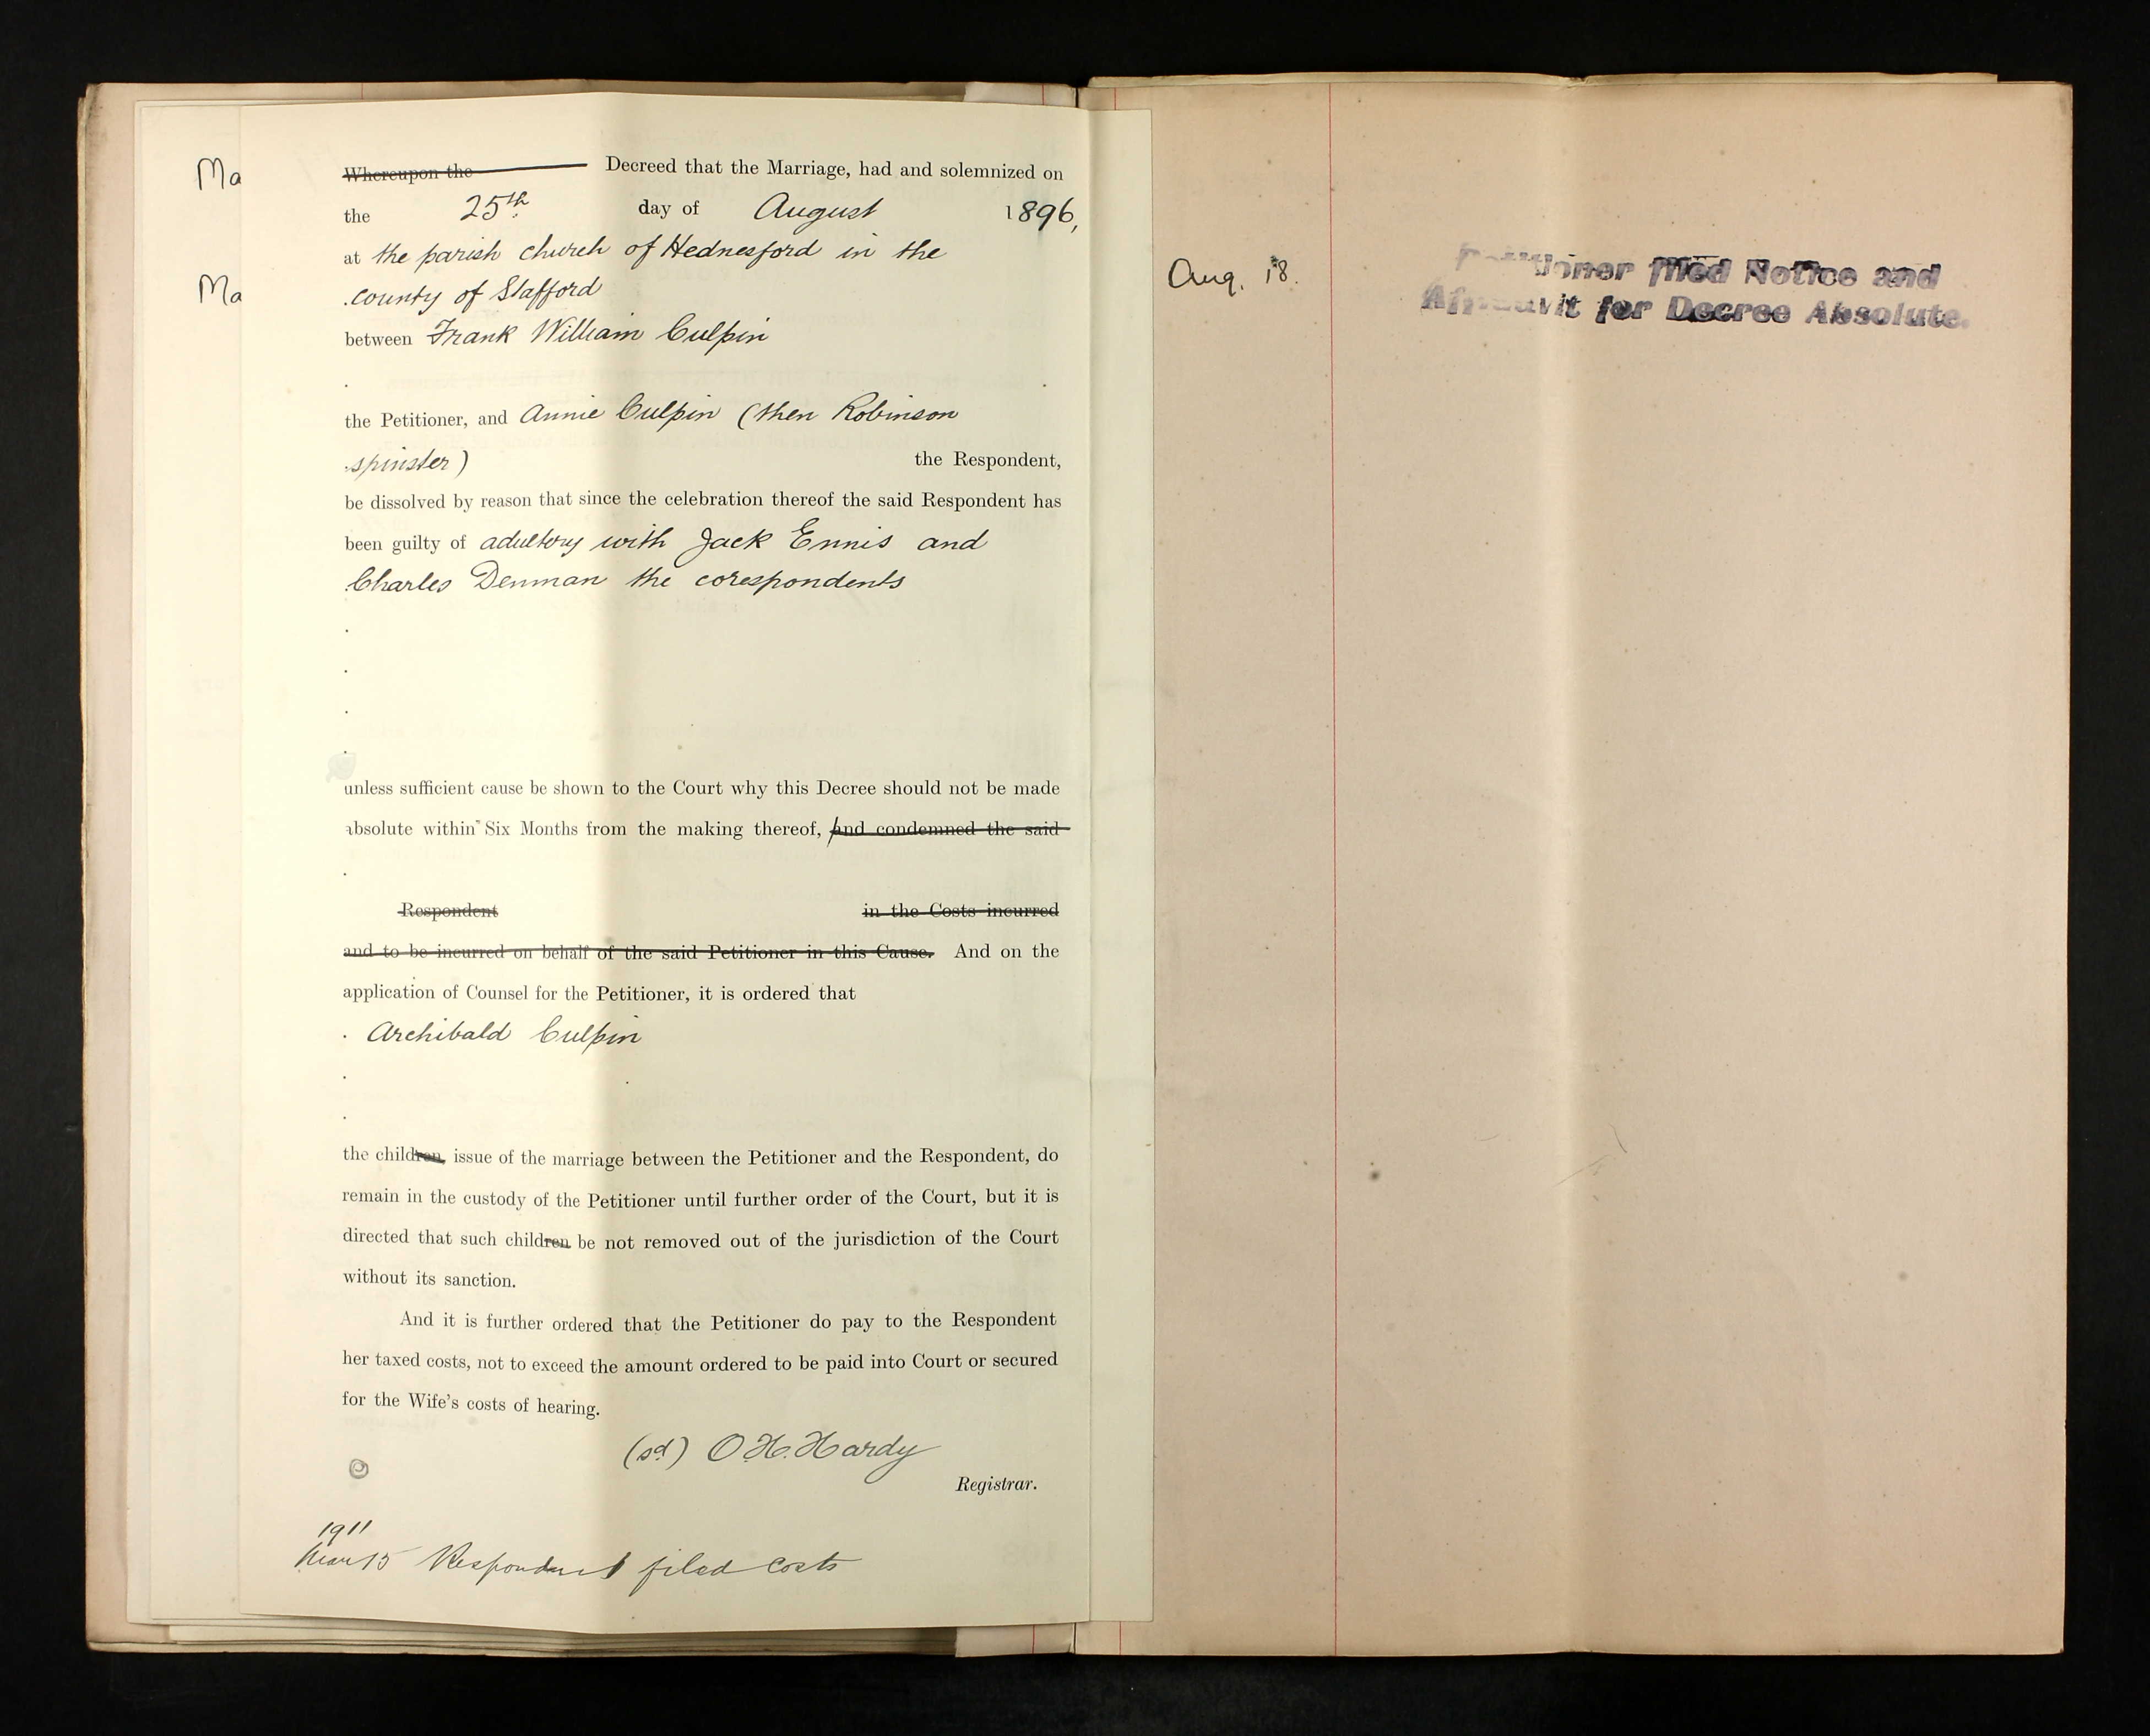 Ma
Ma
Whereupon the Decreed that the Marriage, had and solemnized on
the 25th day of August 1896,
at the parish church of Hednesford in the
county of Stafford
between Frank William Culpin
the Petitioner, and Annie Culpin (then Robinson
spinster) the Respondent,
be dissolved by reason that since the celebration thereof the said Respondent has
been guilty of adultery with Jack Ennis and
Charles Denman the corespondents
unless sufficient cause be shown to the Court why this Decree should not be made
absolute within Six Months from the making thereof, and condemned the said
Respondent in the Costs incurred
and to be incurred on behalf of the said Petitioner in this Cause. And on the
application of Counsel for the Petitioner, it is ordered that
Archibald Culpin
the children, issue of the marriage between the Petitioner and the Respondent, do
remain in the custody of the Petitioner until further order of the Court, but it is
directed that such children be not removed out of the jurisdiction of the Court
without its sanction.
And it is further ordered that the Petitioner do pay to the Respondent
her taxed costs, not to exceed the amount ordered to be paid into Court or secured
for the Wife's costs of hearing.
(sd) O.H. Hardy
Registrar.
1911
Mar 15 Respondent filed costs
Aug. 18.
Petitioner filed Notice and
Affidavit for Decree Absolute.